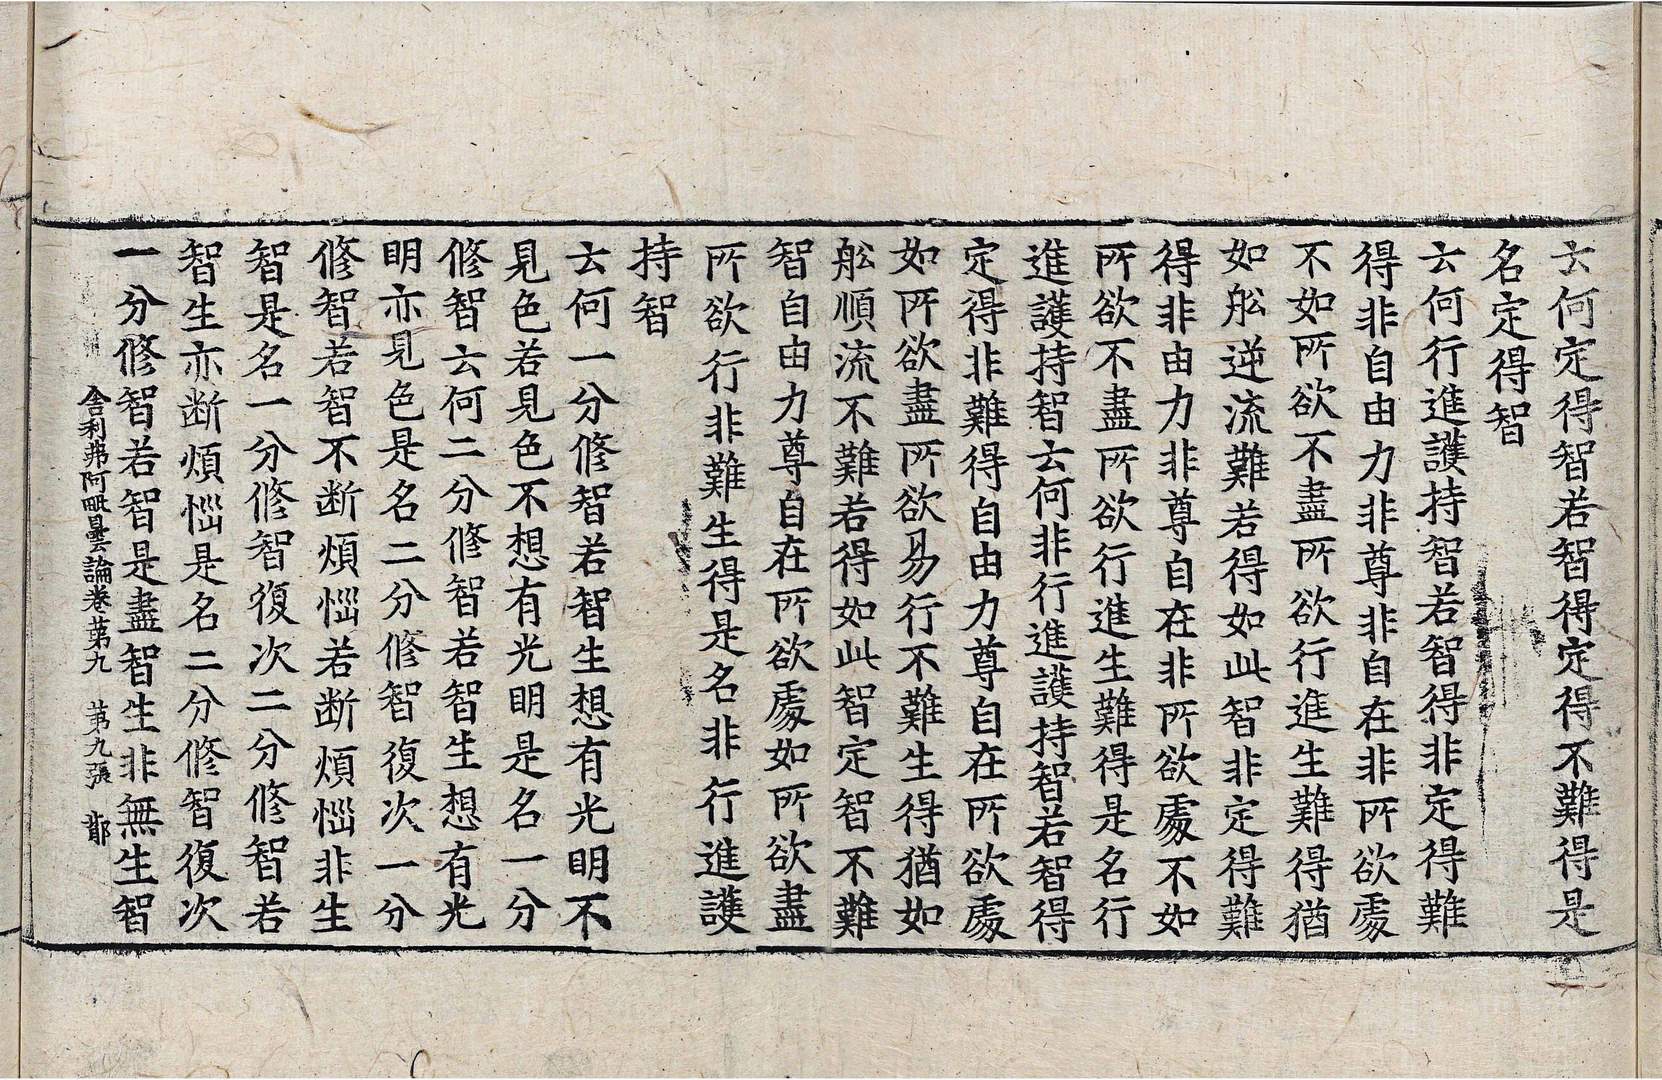 云何定得智若智得定得不難得是
名定得智
云何行進護持智若智得非定得難
得非自由力非尊非自在非所欲處
不如所欲不盡所欲行進生難得猶
如舩逆流難若得如此智非定得難
得非由力非尊自在非所欲處不如
所欲不盡所欲行進生難得是名行
進護持智云何非行進護持智若智得
定得非難得自由力尊自在所欲處
如所欲盡所欲易行不難生得猶如
舩順流不難若得如此智定智不難
智自由力尊自在所欲處如所欲盡
所欲行非難生得是名非行進護
持智
云何一分修智若智生想有光明不
見色若見色不想有光明是名一分
修智云何二分修智若智生想有光
明亦見色是名二分修智復次一分
修智若智不断煩惱若断煩惱非生
智是名一分修智復次二分修智若
智生亦断煩惱是名二分修智復次
一分修智若智是盡智生非無生智
舍利弗阿毗曇論卷苐九 苐九張 鄣